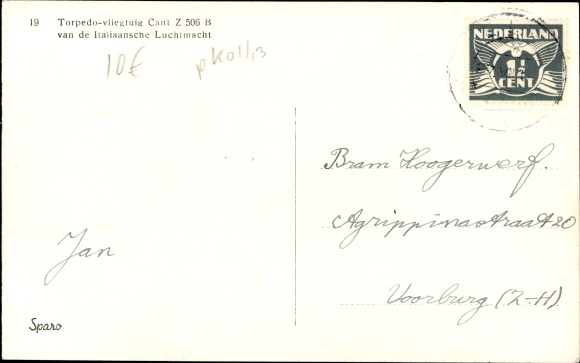 19 Torpedo-vliegtuig Cant Z 506 B
van de Italiaansche Luchtmacht
10€
pk01/13
NEDERLAND
1½
CENT
Bram Hoogerwerf.
Agrippinastraat 20
Voorburg (Z-H)
Jan
Sparo